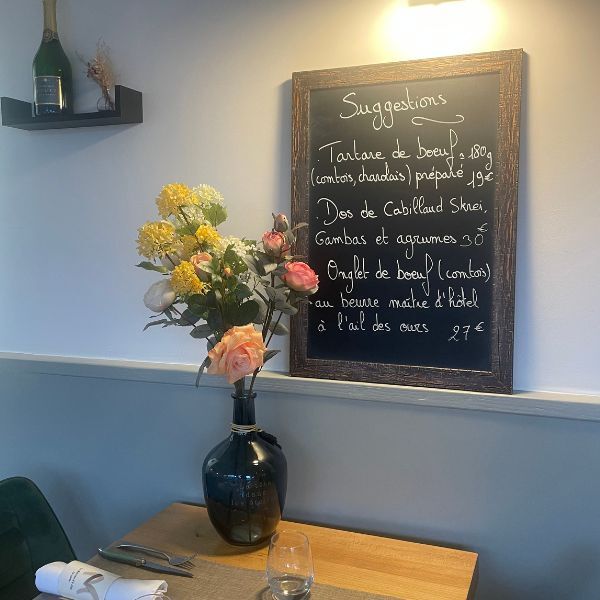 Suggestions
. Tartare de boeuf ≈ 180g
(comtois, charolais) préparé 19€
. Dos de Cabillaud Skrei,
Gambas et agrumes 30€
. Onglet de boeuf (comtois)
au beurre maître d'hôtel
à l'ail des ours 27€